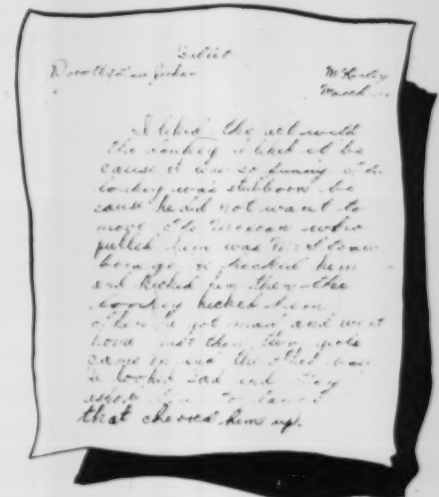 Dorothy
McKinley
March
I liked the act with
the donkey I liked it be
cause it was so funny. The
donkey was stubborn be
cause he did not want to
move. The Mexican who
pulled him was
he him
and kicked him then the
donkey kicked him
then he got mad and went
home just then two gals
came in and the other boy
he looked sad and they
asked him to dance
that cheered him up.